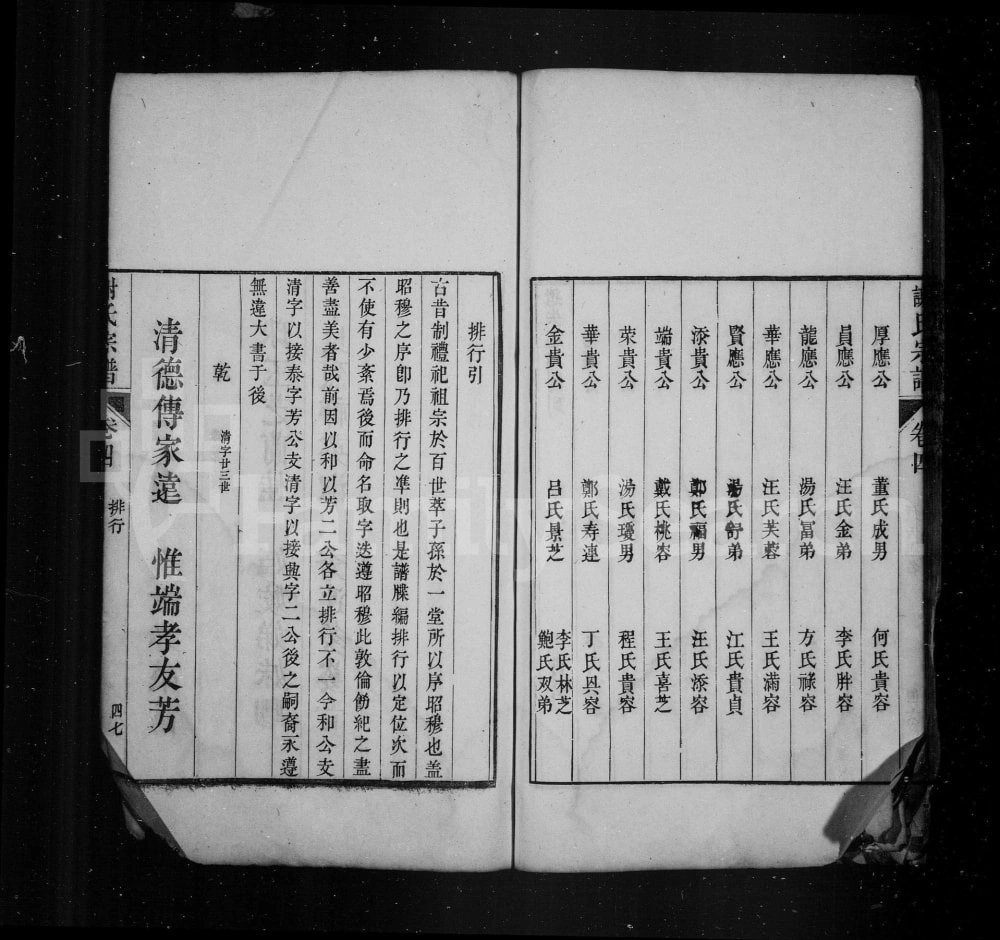 謝氏宗譜 卷四
厚應公 董氏成男 何氏貴容
員應公 汪氏金弟 李氏胖容
龍應公 湯氏冨弟 方氏祿容
華應公 汪氏芙蓉 王氏滿容
賢應公 湯氏舒弟 江氏貴貞
添貴公 鄭氏福男 汪氏添容
端貴公 戴氏桃容 王氏喜芝
荣貴公 湯氏瓊男 程氏貴容
華貴公 鄭氏寿連 丁氏具容
金貴公 吕氏景芝 李氏林芝
鲍氏双弟
排行引
古昔制禮祀祖宗於百世萃子孫於一堂所以序昭穆也盖
昭穆之序卽乃排行之凖則也是譜牒編排行以定位次而
不使有少紊焉後而命名取字迭遵昭穆此敦倫飭紀之盡
善盡美者哉前因以和以芳二公各立排行不一今和公支
清字以接泰字芳公支清字以接興字二公後之嗣裔永遵
無違大書于後
乾 清字廿三世
清德傳家遠 惟端孝友芳
謝氏宗譜 卷四 排行 四七